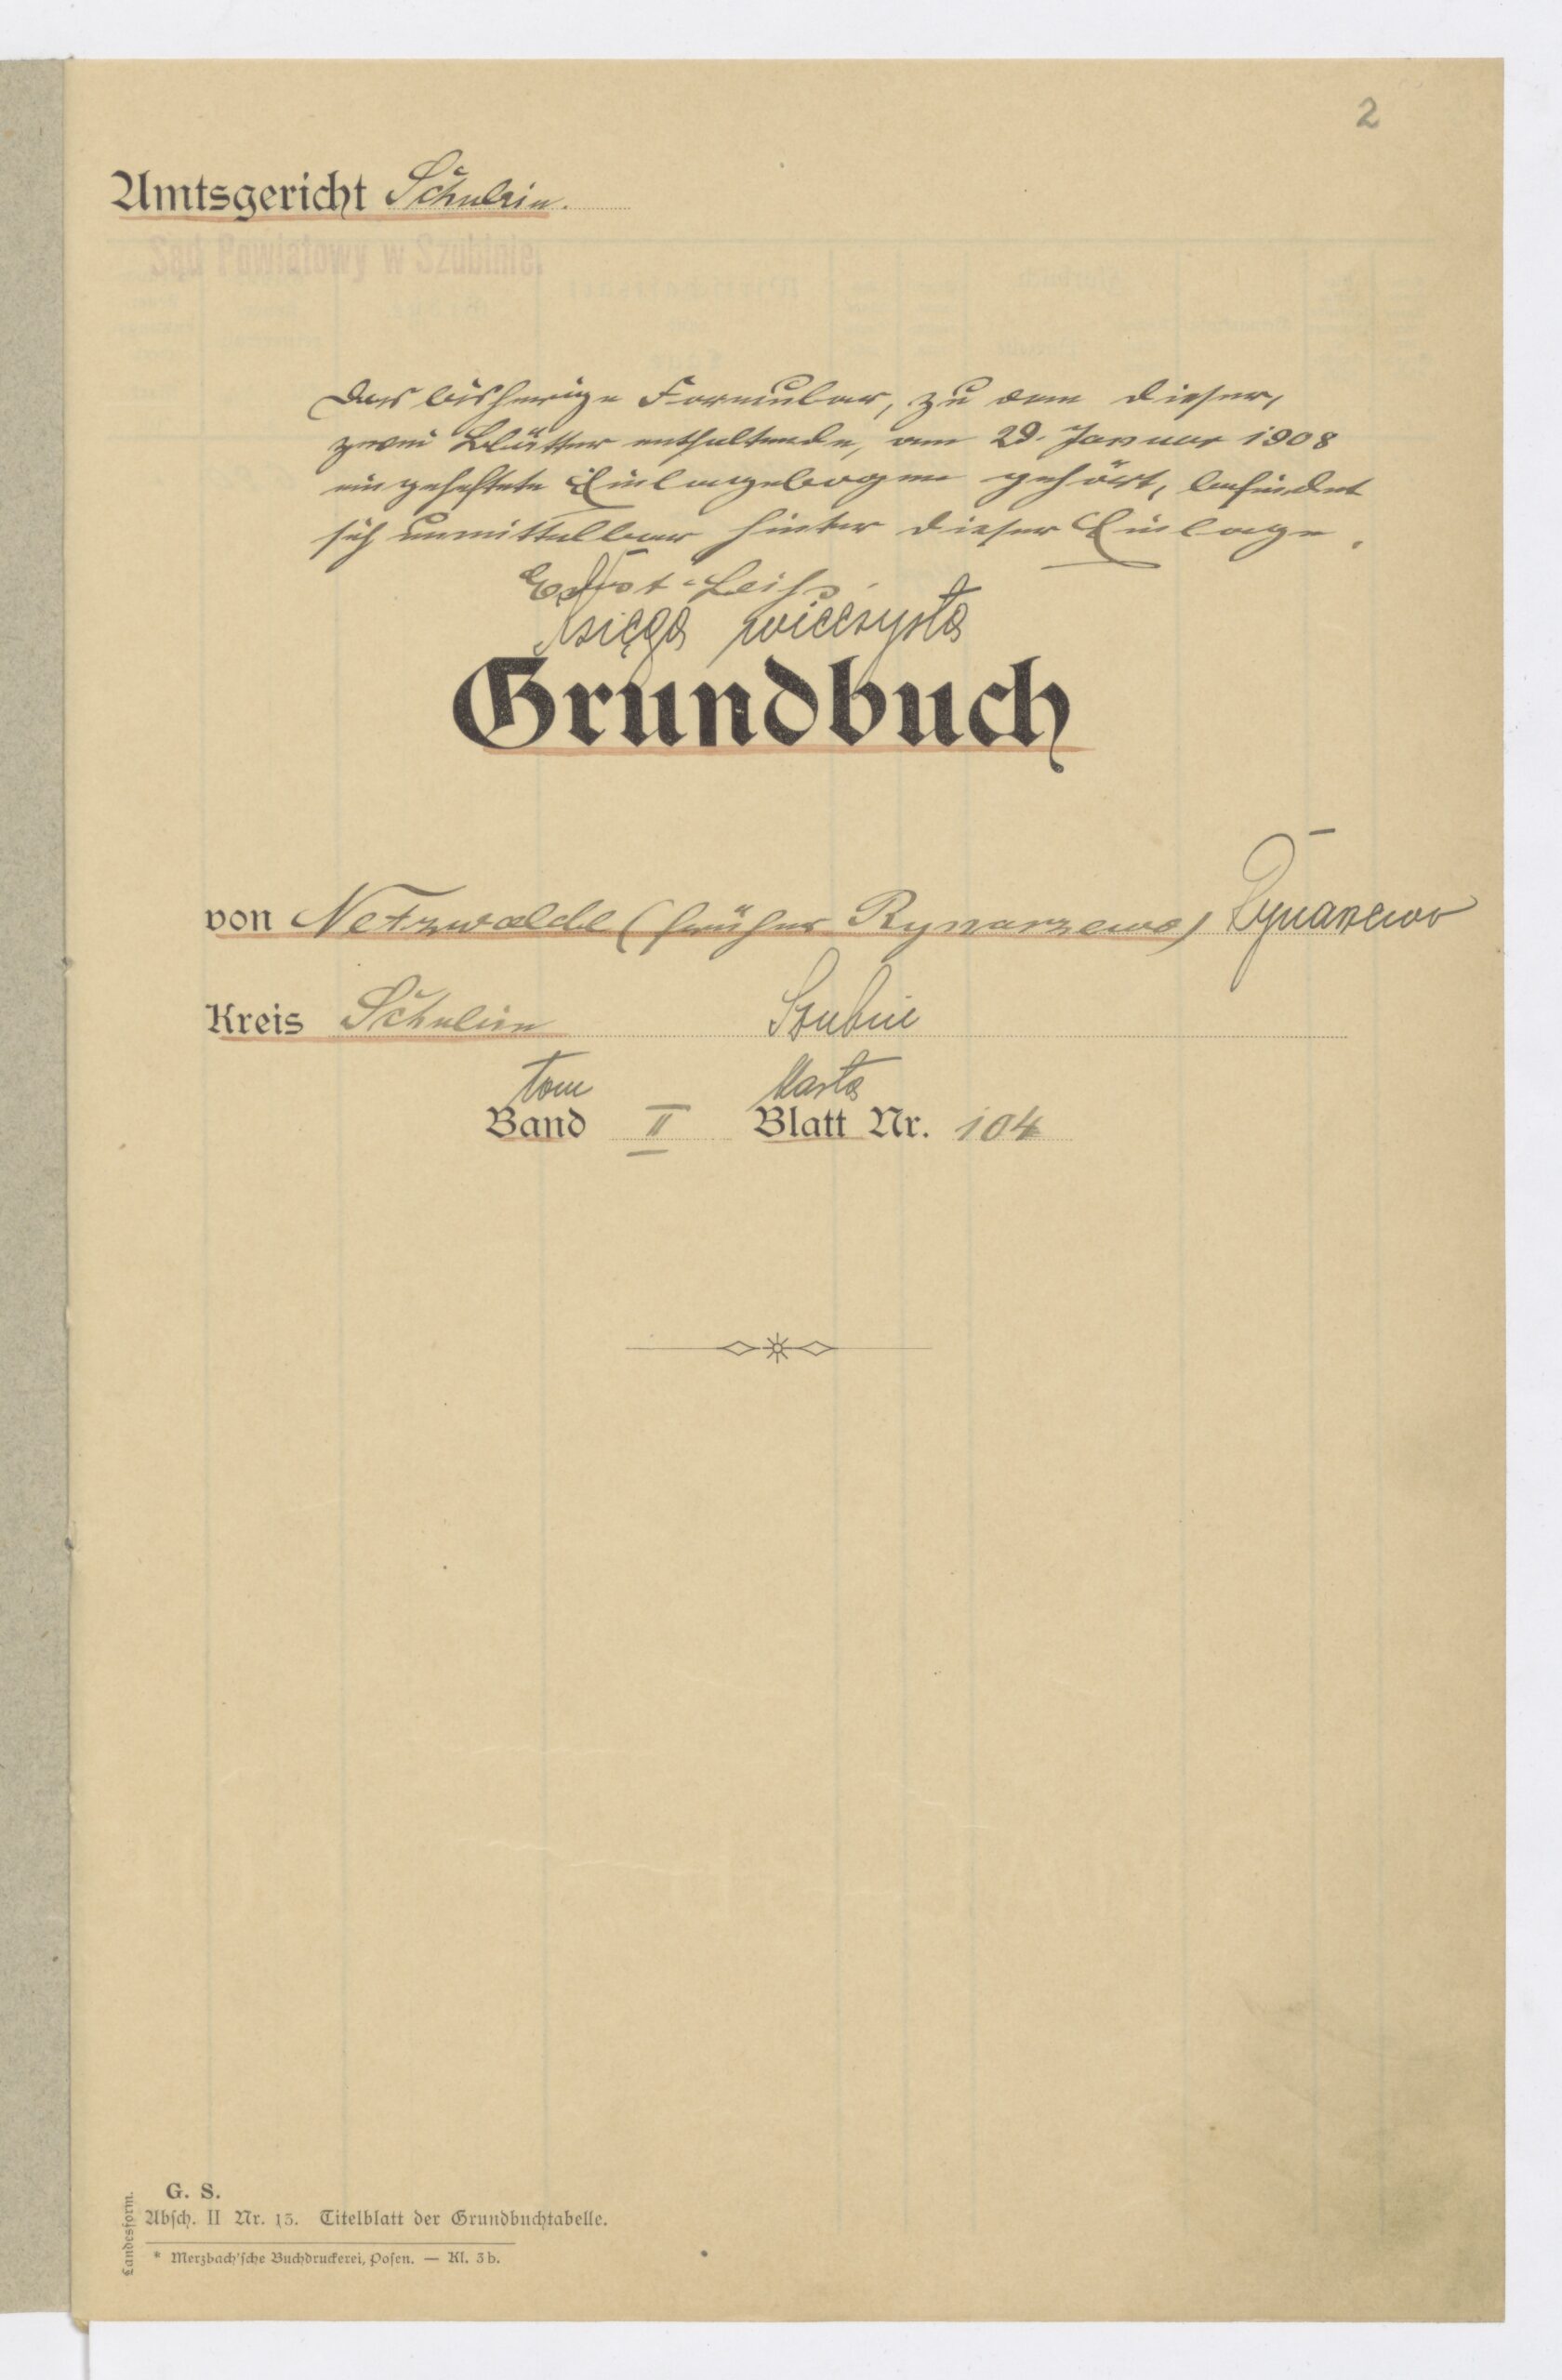 2
Amtsgericht Schubin.
Sąd Powiatowy w Szubinie.
Das bisherige Formular, zu dem dieser,
zwei Blätter enthaltende, am 29. Januar 1908
eingeheftete Einlagebogen gehört, befindet
sich unmittelbar hinter dieser Einlage.
Księga wieczysta
Grundbuch
von Netzwalde (früher Rynarzewo) Rynarzewo
Kreis Schubin Szubin
tom karta
Band II Blatt Nr. 104
G. S.
Absch. II Nr. 15. Titelblatt der Grundbuchtabelle.
* Merzbach'sche Buchdruckerei, Posen. — Kl. 3b.
Landesform.